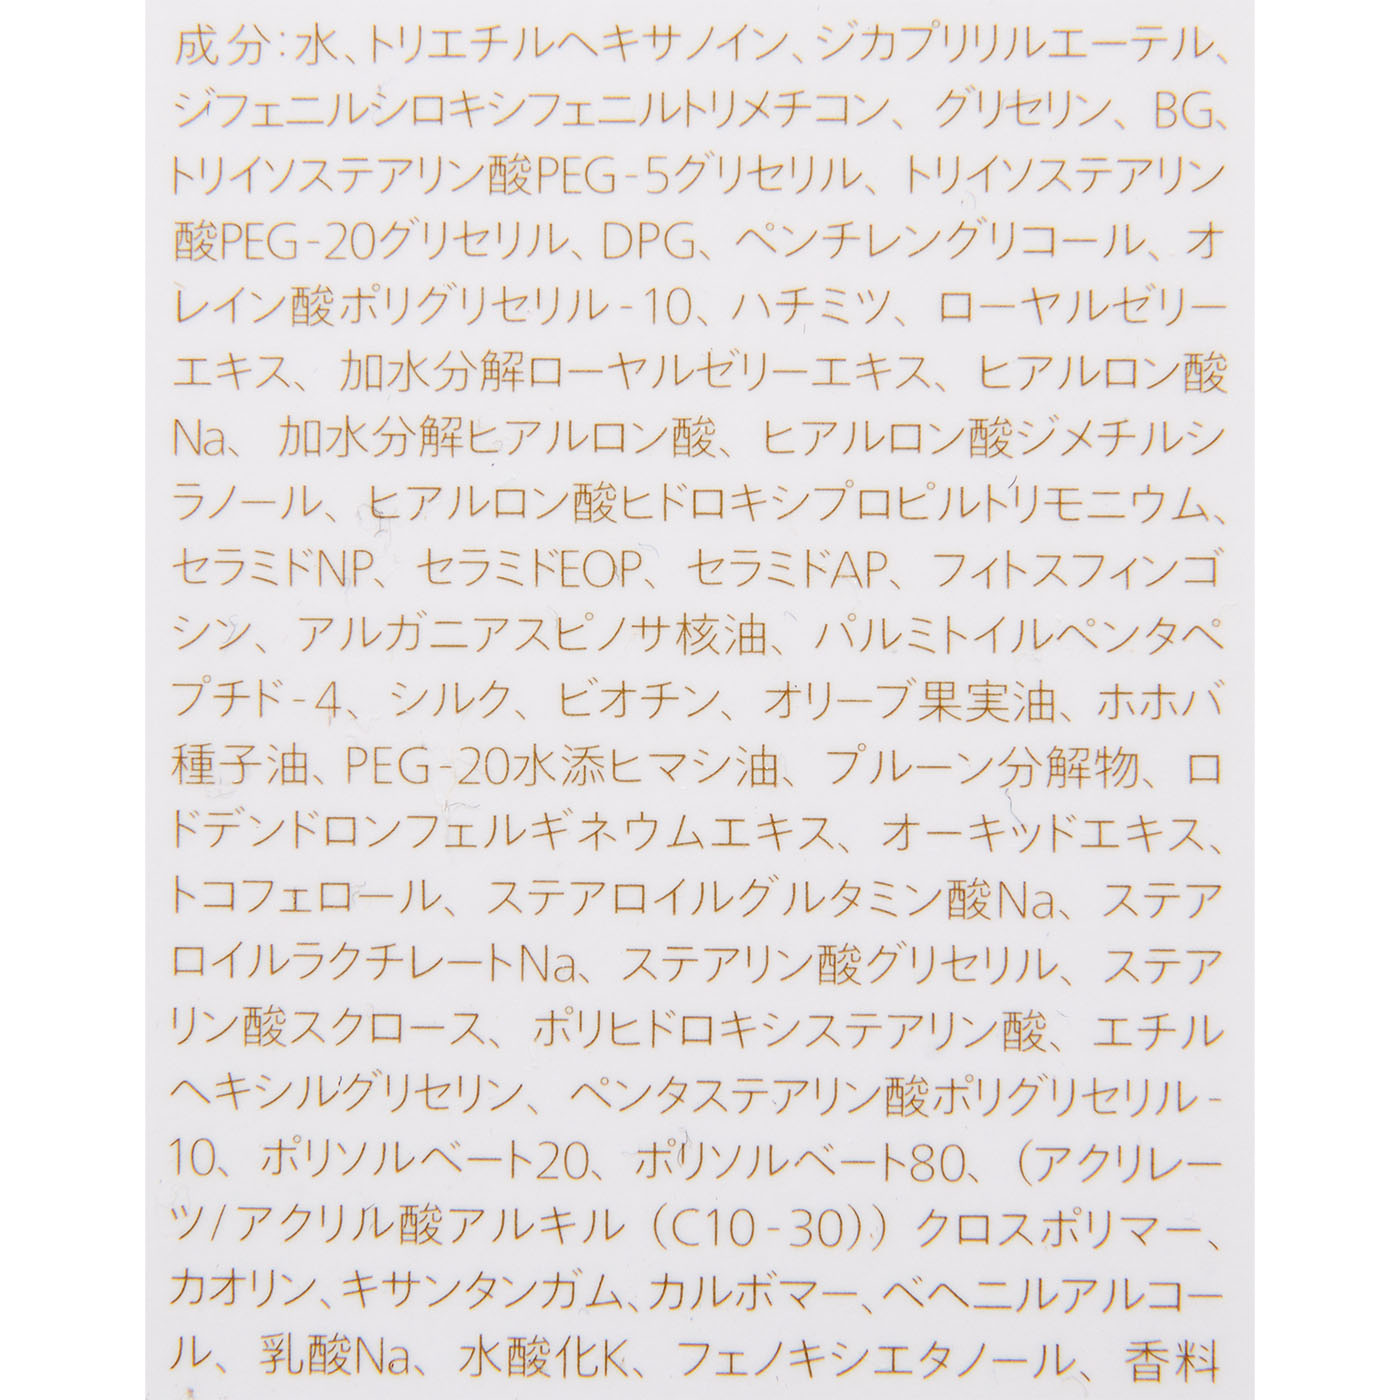 成分：水、トリエチルヘキサノイン、ジカプリリルエーテル、
ジフェニルシロキシフェニルトリメチコン、グリセリン、BG、
トリイソステアリン酸PEG-5グリセリル、トリイソステアリン
酸PEG-20グリセリル、DPG、ペンチレングリコール、オ
レイン酸ポリグリセリル-10、ハチミツ、ローヤルゼリー
エキス、加水分解ローヤルゼリーエキス、ヒアルロン酸
Na、加水分解ヒアルロン酸、ヒアルロン酸ジメチルシ
ラノール、ヒアルロン酸ヒドロキシプロピルトリモニウム、
セラミドNP、セラミドEOP、セラミドAP、フィトスフィンゴ
シン、アルガニアスピノサ核油、パルミトイルペンタペ
プチド-4、シルク、ビオチン、オリーブ果実油、ホホバ
種子油、PEG-20水添ヒマシ油、プルーン分解物、ロ
ドデンドロンフェルギネウムエキス、オーキッドエキス、
トコフェロール、ステアロイルグルタミン酸Na、ステア
ロイルラクチレートNa、ステアリン酸グリセリル、ステア
リン酸スクロース、ポリヒドロキシステアリン酸、エチル
ヘキシルグリセリン、ペンタステアリン酸ポリグリセリル-
10、ポリソルベート20、ポリソルベート80、（アクリレー
ツ/アクリル酸アルキル（C10-30））クロスポリマー、
カオリン、キサンタンガム、カルボマー、ベヘニルアルコー
ル、乳酸Na、水酸化K、フェノキシエタノール、香料